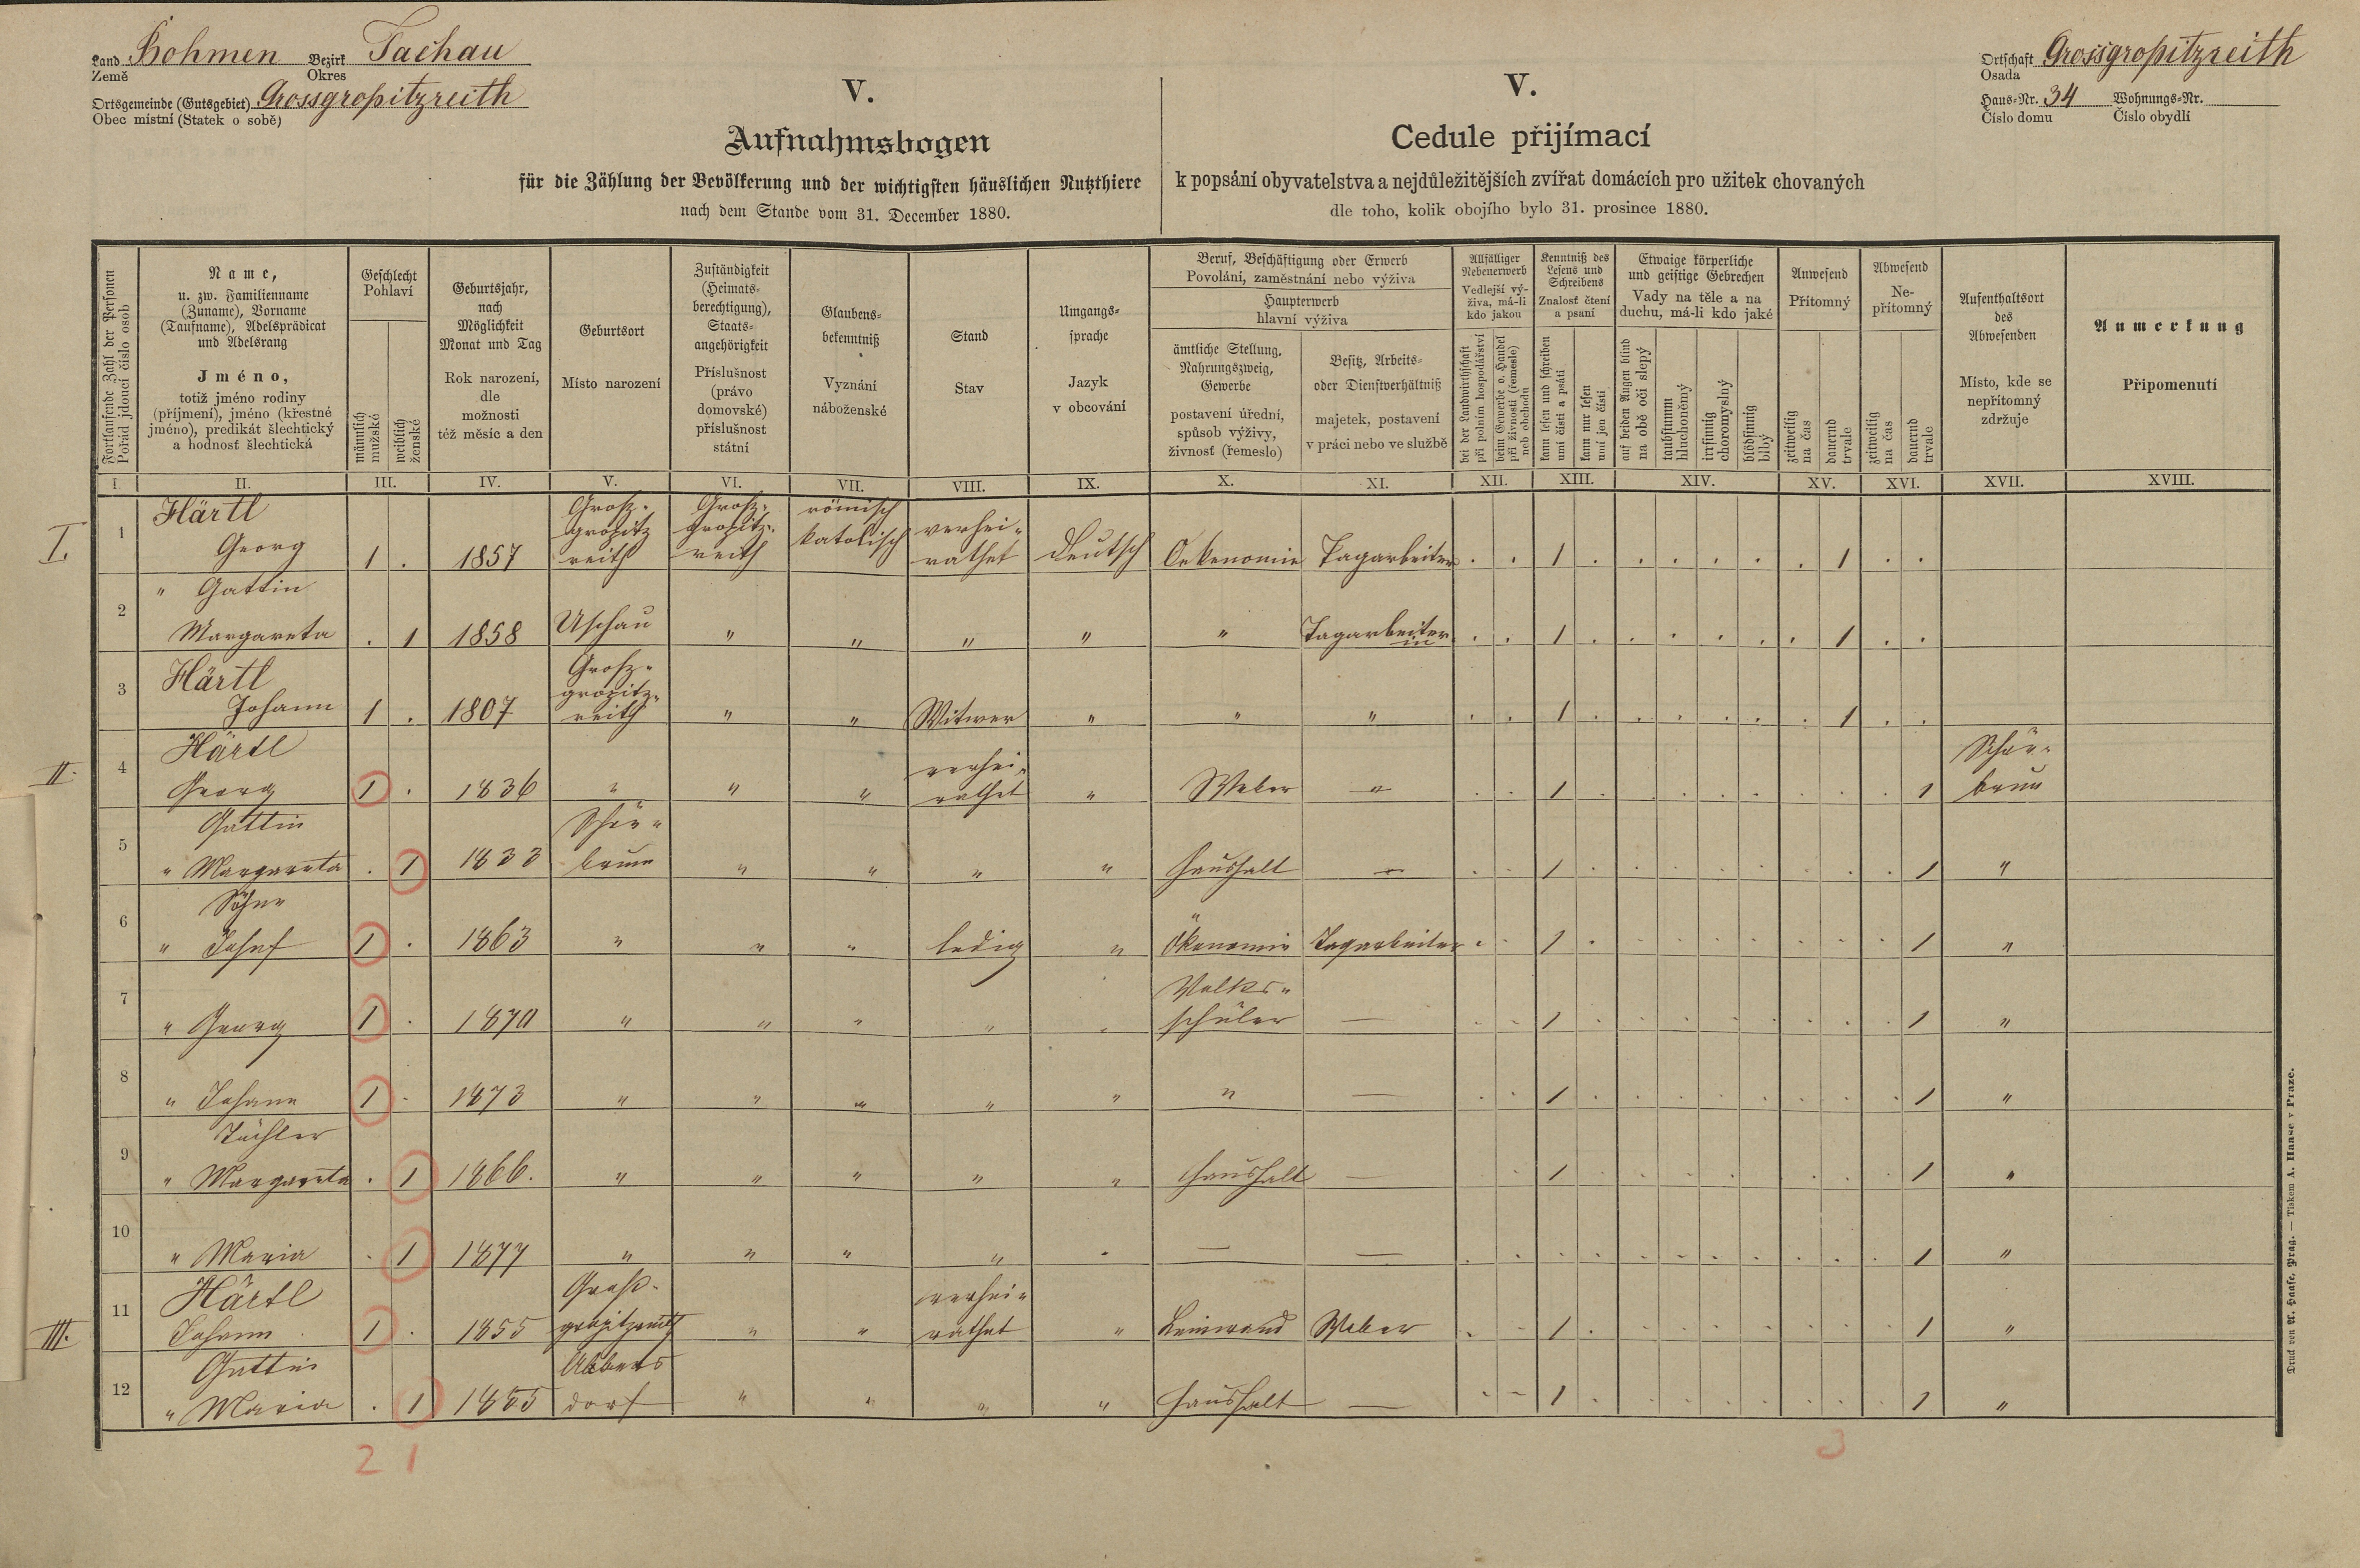 Land Böhmen Bezirk Tachau
Země Okres
Ortsgemeinde (Gutsgebiet) Grossgropitzreith
Obec místní (Statek o sobě)
V.
Aufnahmsbogen
für die Zählung der Bevölkerung und der wichtigsten häuslichen Nutzthiere
nach dem Stande vom 31. December 1880.
V.
Cedule přijímací
k popsání obyvatelstva a nejdůležitějších zvířat domácích pro užitek chovaných
dle toho, kolik obojího bylo 31. prosince 1880.
Ortschaft Grossgropitzreith
Osada
Haus-Nr. 34 Wohnungs-Nr.
Číslo domu Číslo obydlí
Fortlaufende Zahl der Personen
Pořád jdoucí číslo osob
Name,
u. zw. Familienname
(Zuname), Vorname
(Taufname), Adelsprädicat
und Adelsrang
Jméno,
totiž jméno rodiny
(příjmení), jméno (křestné
jméno), predikát šlechtický
a hodnosť šlechtická
Geschlecht
Pohlaví
männlich
mužské
weiblich
ženské
Geburtsjahr,
nach
Möglichkeit
Monat und Tag
Rok narození,
dle
možnosti
též měsíc a den
Geburtsort
Místo narození
Zuständigkeit
(Heimats-
berechtigung),
Staats-
angehörigkeit
Příslušnost
(právo
domovské)
příslušnost
státní
Glaubens-
bekenntniß
Vyznání
náboženské
Stand
Stav
Umgangs-
sprache
Jazyk
v obcování
Beruf, Beschäftigung oder Erwerb
Povolání, zaměstnání nebo výživa
Haupterwerb
hlavní výživa
ämtliche Stellung,
Nahrungszweig,
Gewerbe
postavení úřední,
spůsob výživy,
živnosť (řemeslo)
Besitz, Arbeits-
oder Dienstverhältniß
majetek, postavení
v práci nebo ve službě
Allfälliger
Nebenerwerb
Vedlejší vý-
živa, má-li
kdo jakou
bei der Landwirthschaft
při polním hospodářství
beim Gewerbe o. Handel
při živnosti (řemesle)
neb obchodu
Kenntniß des
Lesens und
Schreibens
Znalosť čtení
a psaní
kann lesen und schreiben
umí čísti a psáti
kann nur lesen
umí jen čísti
Etwaige körperliche
und geistige Gebrechen
Vady na těle a na
duchu, má-li kdo jaké
auf beiden Augen blind
na obě oči slepý
taubstumm
hluchoněmý
irrsinnig
choromyslný
blödsinnig
blbý
Anwesend
Přítomný
zeitweilig
na čas
dauernd
trvale
Abwesend
Ne-
přítomný
zeitweilig
na čas
dauernd
trvale
Aufenthaltsort
des
Abwesenden
Místo, kde se
nepřítomný
zdržuje
Anmerkung
Připomenutí
I. II. III. IV. V. VI. VII. VIII. IX. X. XI. XII. XIII. XIV. XV. XVI. XVII. XVIII.
I. 1 Härtl Georg 1 . 1857 Grosz-gropitz reith Grosz-gropitz-reith römisch katolisch verhei-rathet deutsch Oekenomie Tagarbeiter . . 1 . . . . . . 1 . .
2 " Gattin Margareta . 1 1858 Uschau " " " " " Tagarbeiterin . . 1 . . . . . . 1 . .
3 Härtl Johann 1 . 1807 Grosz-gropitz-reith " " Witwer " " " . . 1 . . . . . . 1 . .
II. 4 Härtl Georg 1 . 1836 " " " verhei-rathet " Weber " . . 1 . . . . . . . . 1 Schön-brun
5 Gattin " Margareta . 1 1833 Schön-brunn " " " " Haushalt — . . 1 . . . . . . . . 1 "
6 Söhne " Josef 1 . 1863 " " " ledig " Ökonomie Tagarbeiter . . 1 . . . . . . . . 1 "
7 " Georg 1 . 1870 " " " " " Volks-schüler — . . 1 . . . . . . . . 1 "
8 " Johann 1 . 1873 " " " " " " — . . 1 . . . . . . . . 1 "
9 Töchter " Margareta . 1 1866. " " " " " Haushalt — . . 1 . . . . . . . . 1 "
10 " Maria . 1 1877 " " " " " — — . . . . . . . . . . . 1 "
III. 11 Härtl Johann 1 . 1855 Groß-gropitzreith " " verhei-rathet " Leinwand Weber . . 1 . . . . . . . . 1 "
12 Gattin " Maria . 1 1855 dorf " " " " Haushalt — . . 1 . . . . . . . . 1 "
2 1 3
Druck von A. Haase, Prag. — Tiskem A. Haase v Praze.